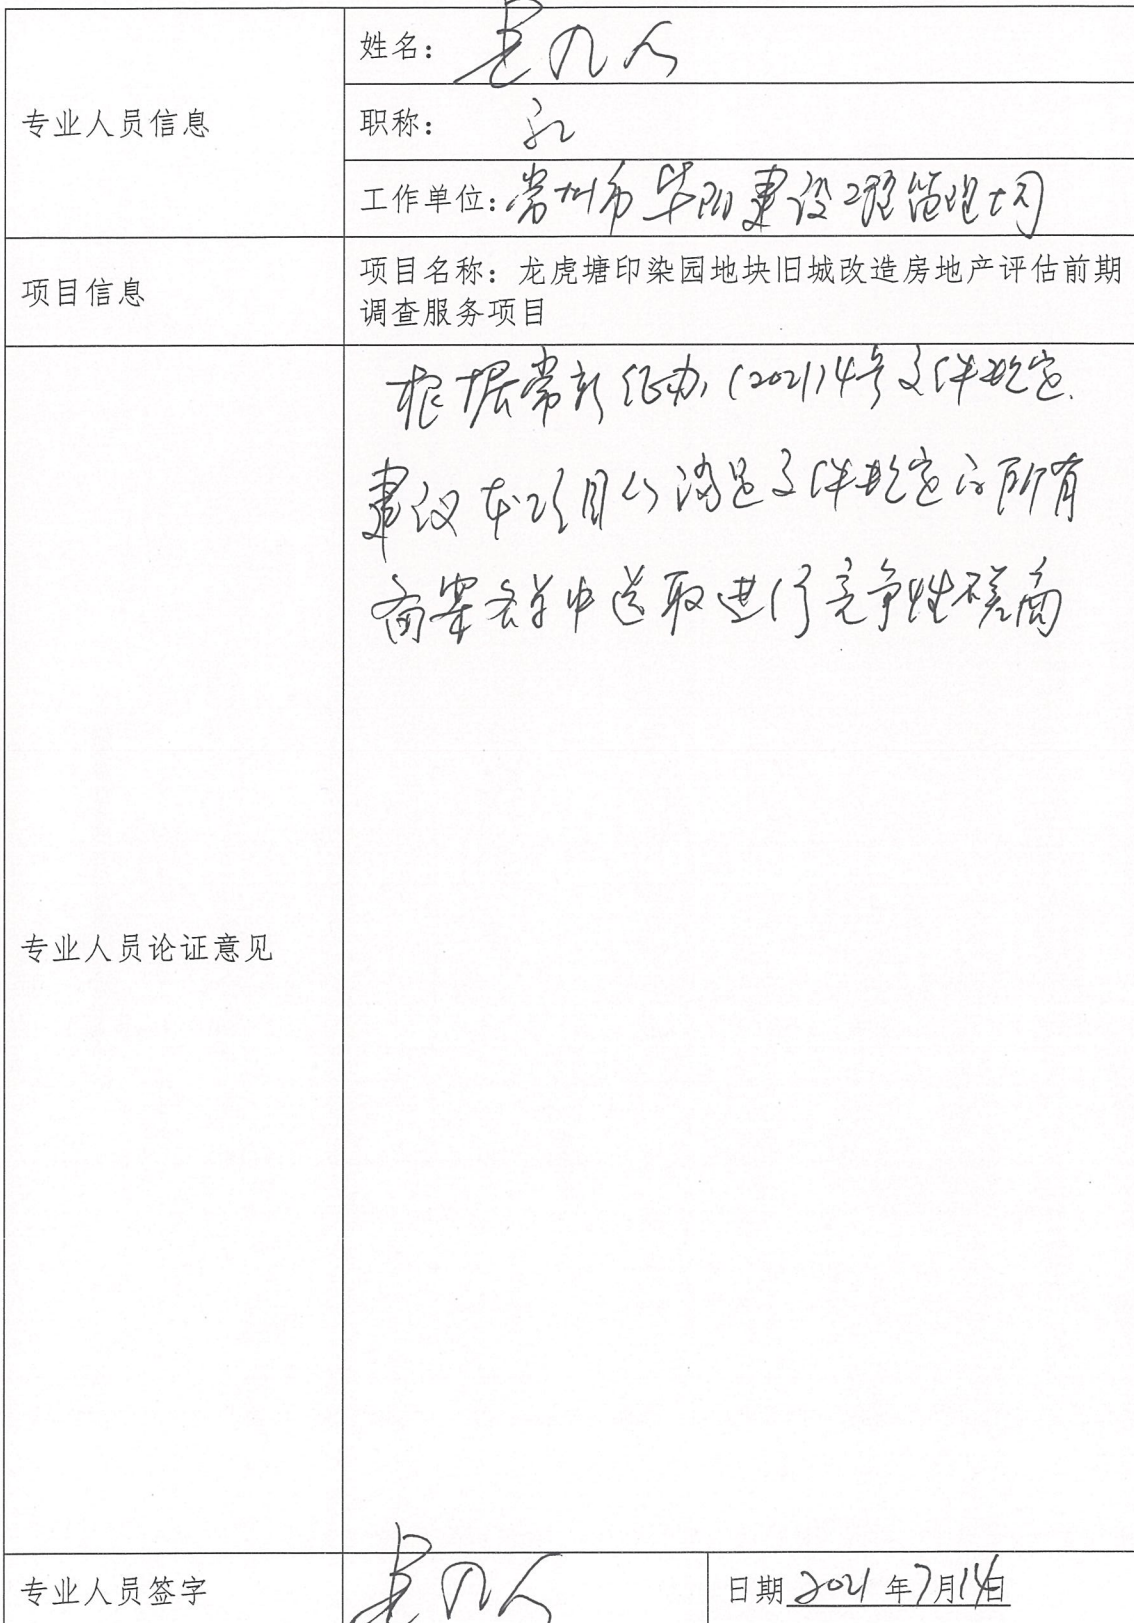 专业人员信息
姓名：
职称：高工
工作单位：常州市华阳建设工程监理公司
项目信息
项目名称：龙虎塘印染园地块旧城改造房地产评估前期
调查服务项目
根据常新征办（2021）4号文件规定.
建议本项目从满足文件规定的所有
备案名单中选取进行竞争性磋商
专业人员论证意见
专业人员签字
日期 2021 年7月14日